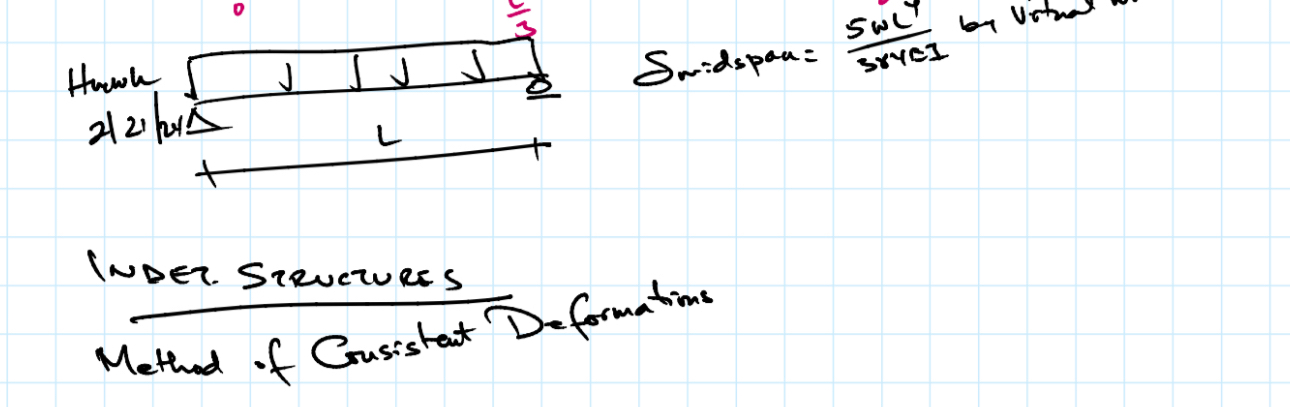 0
L/3
Hmwk
2/21/24
L
δmidspan = 5wL⁴/384EI by Virtual
INDET. STRUCTURES
Method of Consistent Deformations